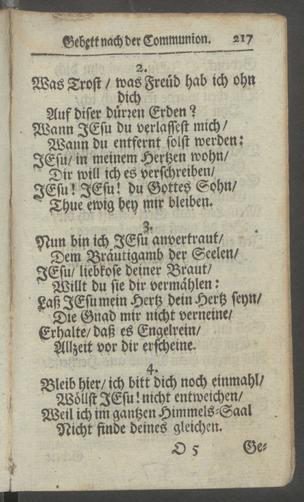 Gebett nach der Communion. 217
2.
Was Trost / was Freüd hab ich ohn
dich
Auf diser dürren Erden?
Wann JEsu du verlassest mich /
Wann du entfernt solst werden:
JEsu / in meinem Hertzen wohn /
Dir will ich es verschreiben /
JEsu! JEsu! du Gottes Sohn /
Thue ewig bey mir bleiben.
3.
Nun bin ich JEsu anvertraut /
Dem Bräutigamb der Seelen /
JEsu / liebkose deiner Braut /
Willt du sie dir vermählen:
Laß JEsu mein Hertz dein Hertz seyn /
Die Gnad mir nicht verneine /
Erhalte / daß es Engelrein /
Allzeit vor dir erscheine.
4.
Bleib hier / ich bitt dich noch einmahl /
Wöllst JEsu! nicht entweichen /
Weil ich im gantzen Himmels-Saal
Nicht finde deines gleichen.
O 5 Ge-